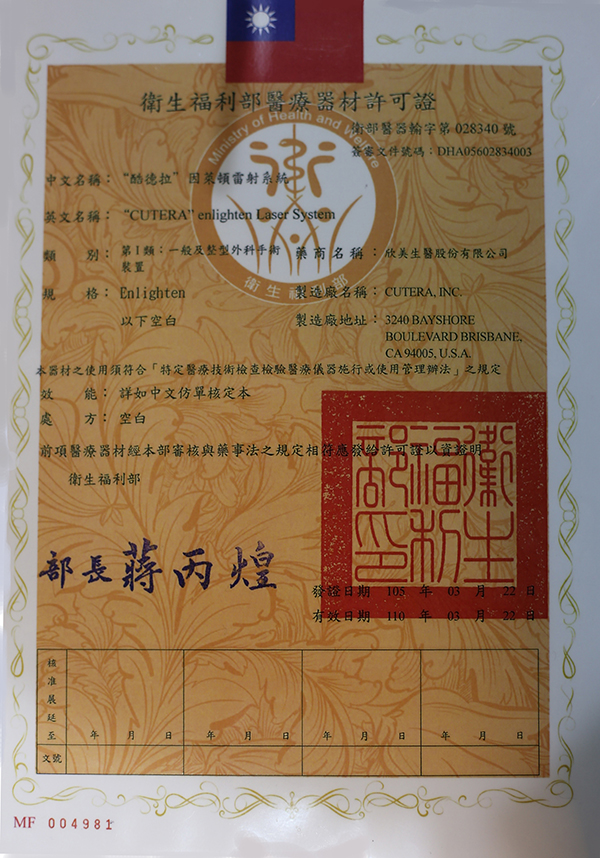 衛生福利部醫療器材許可證
Ministry of Health and Welfare
衛生福利部
衛部醫器輸字第 028340 號
簽審文件號碼：DHA05602834003
中文名稱：“酷德拉”因萊頓雷射系統
英文名稱：“CUTERA” enlighten Laser System
類 別：第I類：一般及整型外科手術裝置
藥商名稱：欣美生醫股份有限公司
規 格：Enlighten
製造廠名稱：CUTERA, INC.
以下空白
製造廠地址：3240 BAYSHORE
BOULEVARD BRISBANE,
CA 94005, U.S.A.
本器材之使用須符合「特定醫療技術檢查檢驗醫療儀器施行或使用管理辦法」之規定
效 能：詳如中文仿單核定本
處 方：空白
前項醫療器材經本部審核與藥事法之規定相符應發給許可證以資證明
衛生福利部
衛生福利部印
部長 蔣丙煌
發證日期 105 年 03 月 22 日
有效日期 110 年 03 月 22 日
核准展延至
年 月 日 年 月 日 年 月 日 年 月 日
文號
MF 004981